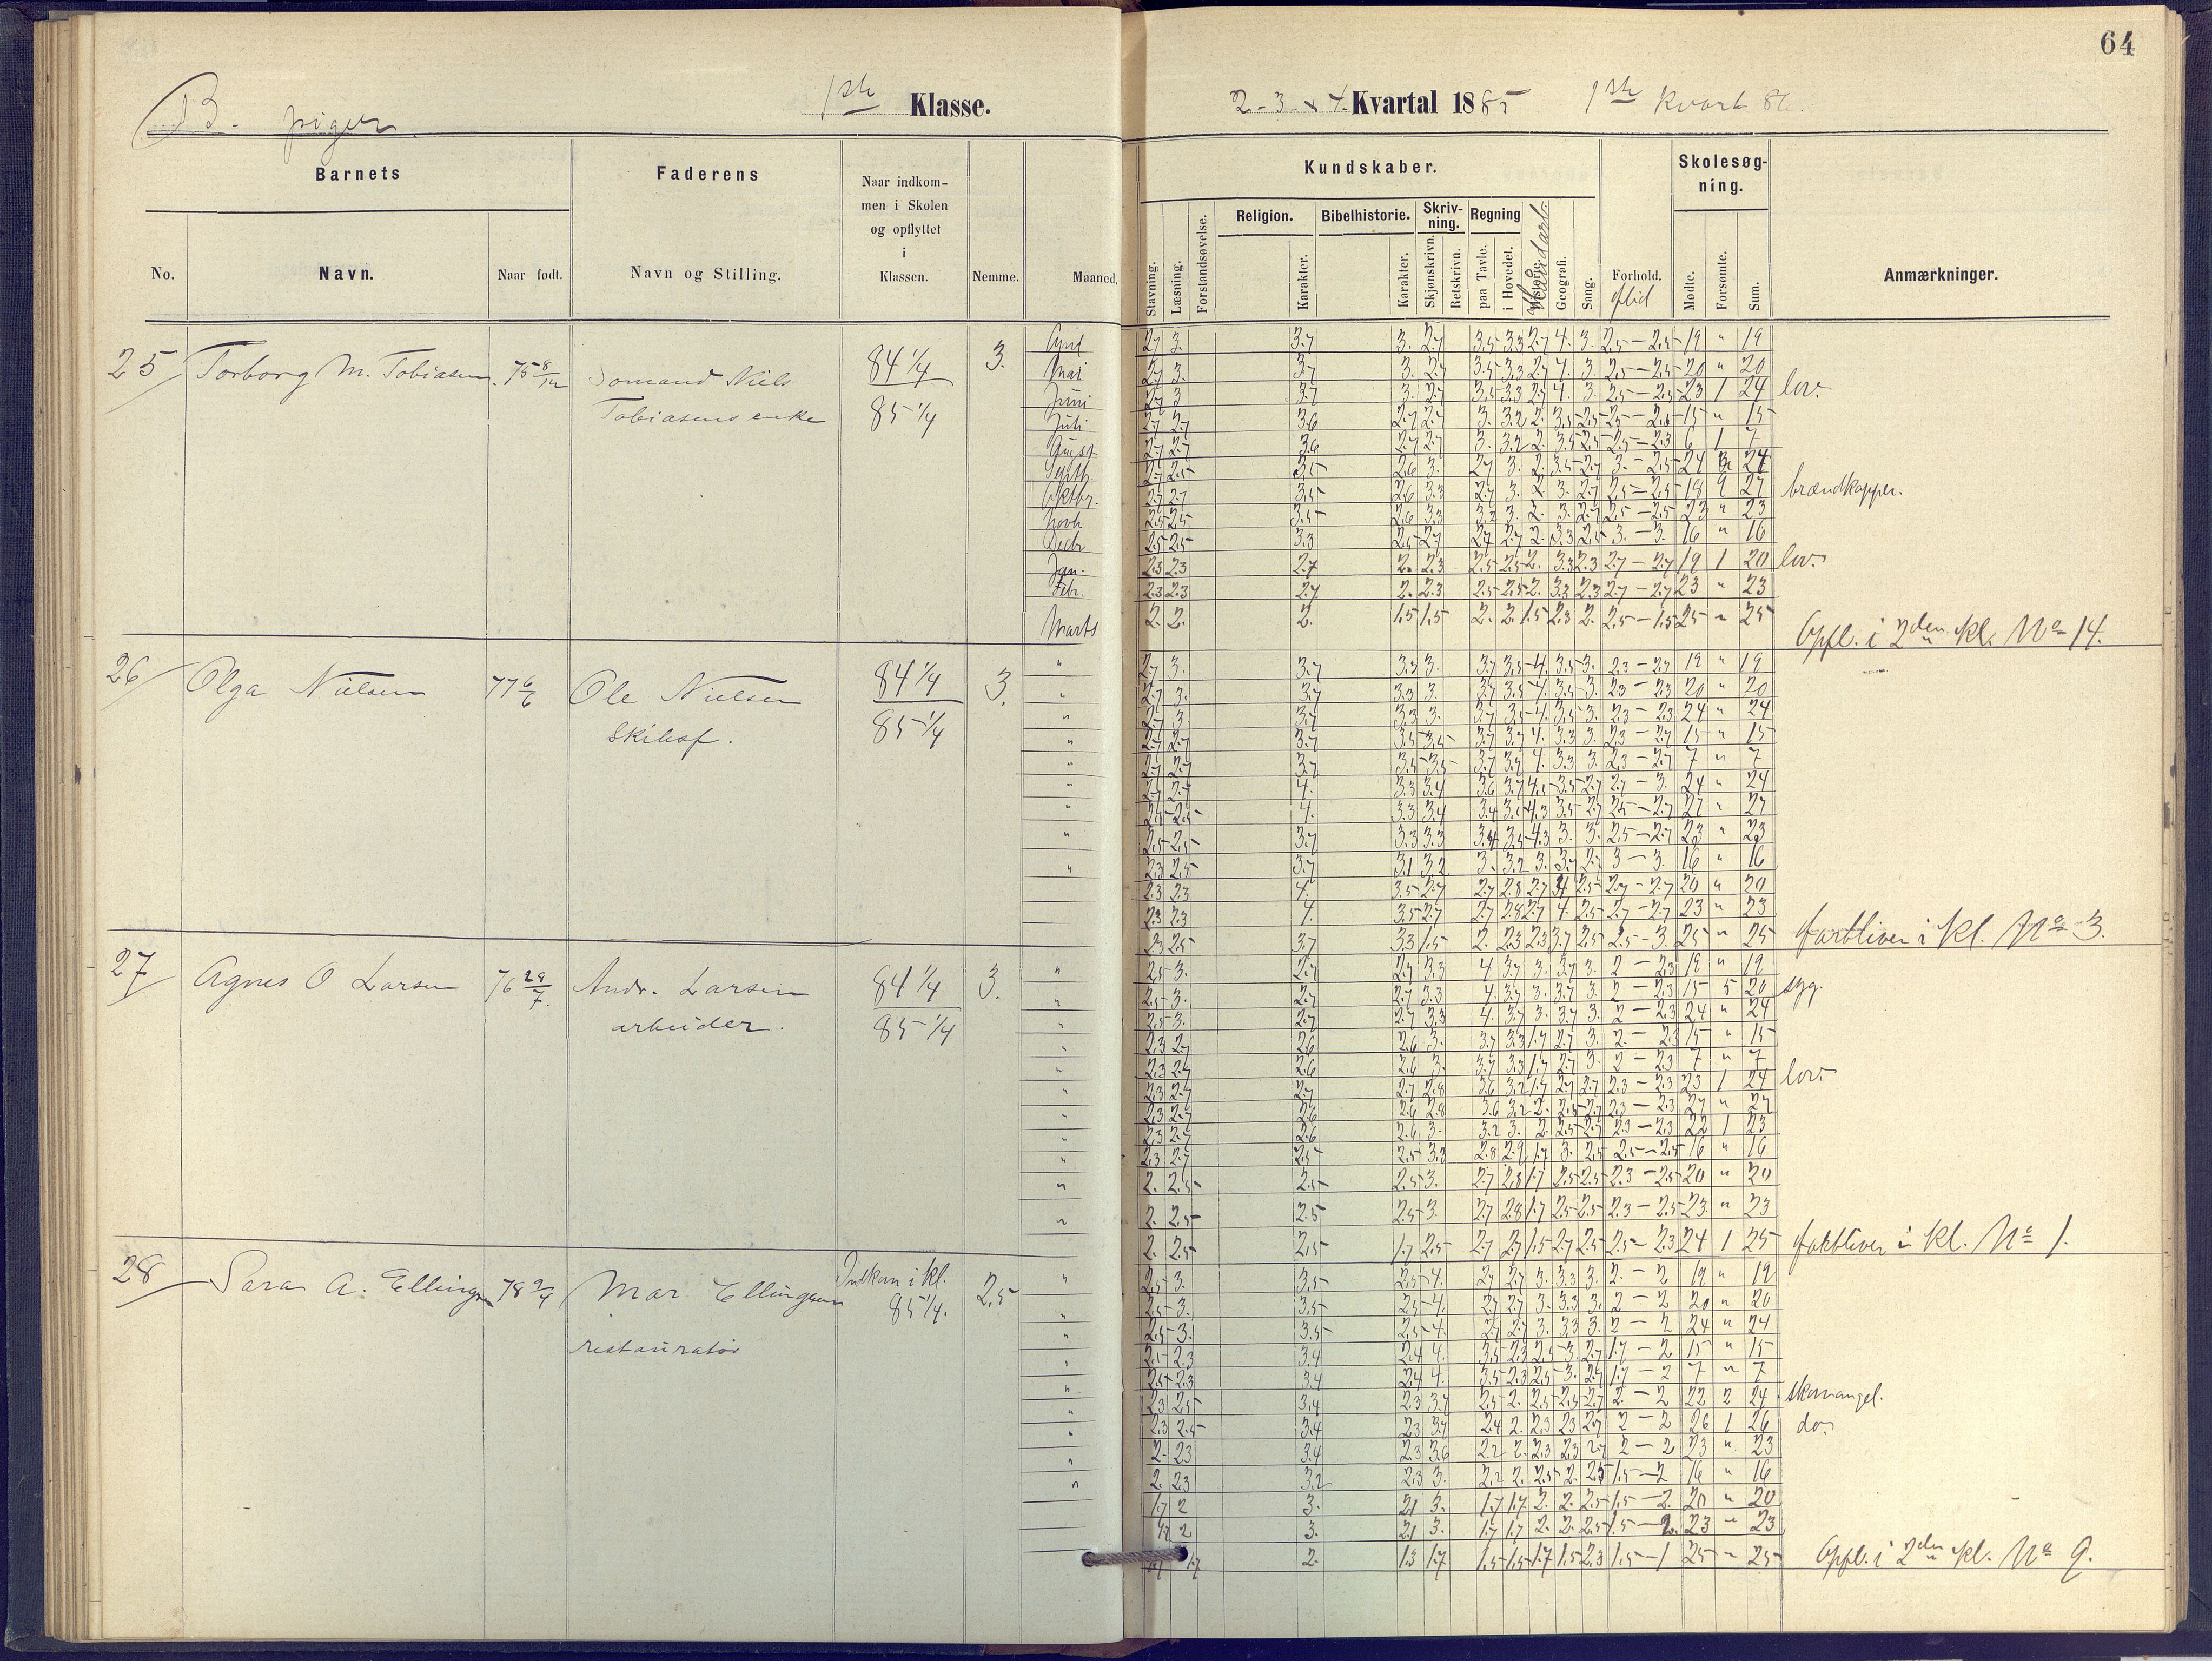 64
B. piger
1ste Klasse.
2-3 & 4. Kvartal 1885 1ste Kvart 86.
Barnets
Faderens
Naar indkom-
men i Skolen
og opflyttet
i
Klassen.
Kundskaber.
Skolesøg-
ning.
Religion. Bibelhistorie. Skriv-
ning. Regning
No. Navn. Naar født. Navn og Stilling. Nemme. Maaned.
Stavning. Læsning. Forstandsøvelse. Karakter. Karakter. Skjønskrivn. Retskrivn. paa Tavle. i Hovedet. Historie. Haandarb. Geografi. Sang. Forhold. Flid Mødte. Forsømte. Sum. Anmærkninger.
25 Torborg M. Tobiasen. 75 8/12 Sømand Niels
Tobiasens enke
84 1/4
85 1/4
3.
April 2.7 3. 3.7 3. 2.7 3.5 3.3 2.7 4. 3. 2.5 - 2.5 19 " 19
Mai 2.7 3. 3.7 3. 2.7 3.5 3.3 2.7 4. 3. 2.5 - 2.5 20 " 20
Juni 2.7 3 3.7 3. 2.7 3.5 3.3 2.7 4. 3. 2.5 - 2.5 23 1 24 lov.
Juli 2.7 2.7 3.6 2.7 2.7 3. 3.2 2. 3.5 2.5 2.5 - 2.5 15 " 15
August 2.7 2.7 3.6 2.7 2.7 3. 3.2 2. 3.5 2.5 2.5 - 2.3 6 1 7
Septb. 2.7 2.5 3.5 2.6 3. 2.7 3. 2. 3.5 2.7 3. - 2.5 24 24
Oktbr. 2.7 2.7 3.5 2.6 3.3 2.7 3. 2. 3. 2.7 2.5 - 2.5 18 9 27 brændkopper.
Novb 2.5 2.5 3.5 2.6 3.3 3.2 3. 2. 3. 2.7 2.5 - 2.5 23 " 23
Decbr 2.5 2.5 3.3 2.5 2.7 2.7 2.7 2. 3.3 2.5 3. - 3. 16 " 16
Jan. 2.3 2.3 2.7 2. 2.3 2.5 2.5 2. 3.3 2.3 2.7 - 2.7 19 1 20 lov.
Febr. 2.3 2.3 2.7 2. 2.3 2.5 2.5 2. 3.3 2.3 2.7 - 2.7 23 " 23
Marts 2. 2. 2. 1.5 1.5 2. 2. 1.5 2.3 2. 2.5 - 1.5 25 " 25 Opfl. i 2den kl. No 14.
26 Olga Nielsen 77 6/6 Ole Nielsen
Skibsf.
84 1/4
85 1/4
3.
" 2.7 3. 3.7 3.3 3. 3.7 3.5 4. 3.5 3. 2.3 - 2.3 19 " 19
" 2.7 3. 3.7 3.3 3. 3.7 3.5 4. 3.5 3. 2.3 - 2.3 20 " 20
" 2.7 3 3.7 3.3 3. 3.7 3.5 4. 3.5 3. 2.3 - 2.3 24 " 24
" 2.7 2.7 3.7 3.5 3.5 3.7 3.7 4. 3.3 3. 2.3 - 2.7 15 " 15
" 2.7 2.7 3.7 3.5 3.5 3.7 3.7 4. 3.3 3. 2.3 - 2.7 7 " 7
" 2.7 2.7 4. 3.3 3.4 3.6 3.7 4. 3.5 2.7 2.7 - 3. 24 " 24
" 2.5 2.5 4. 3.3 3.4 3.4 3.5 4.3 3.5 2.7 2.5 - 2.7 27 " 27
" 2.5 2.5 3.7 3.3 3.3 3.4 3.5 4.3 3. 3. 2.5 - 2.7 23 " 23
" 2.3 2.5 3.7 3.1 3.2 3. 3.2 3. 3.7 2.7 3 - 3. 16 " 16
2.3 2.3 4. 3.5 2.7 2.7 2.8 2.7 4 2.5 2.7 - 2.7 20 " 20
2.3 2.3 4. 3.5 2.7 2.7 2.8 2.7 4. 2.5 2.7 - 2.7 23 " 23
2.3 2.5 3.7 3.3 1.5 2. 2.3 2.3 3.7 2.5 2.5 - 3. 25 " 25 forbliver i kl. No 3.
27 Agnes O Larsen 76 29/7 Andr. Larsen
arbeider.
84 1/4
85 1/4
3.
" 2.5 3. 2.7 2.7 3.3 4 3.7 3. 3.7 3. 2 - 2.3 19 " 19
" 2.5 3. 2.7 2.7 3.3 4. 3.7 3. 3.7 3. 2 - 2.3 15 5 20 syg.
" 2.5 3. 2.7 2.7 3.3 4. 3.7 3. 3.7 3. 2 - 2.3 24 " 24
" 2.3 2.7 2.6 2.6 3. 3.7 3.3 1.7 2.7 3. 2. - 2.3 15 " 15
" 2.3 2.7 2.6 2.6 3. 3.7 3.3 1.7 2.7 3. 2 - 2.3 7 " 7
" 2.3 2.7 2.7 2.7 2.8 3.6 3.2 1.7 2.7 2.7 2.3 - 2.3 23 1 24 lov.
" 2.3 2.7 2.6 2.6 2.8 3.6 3.2 2. 2.5 2.7 2.3 - 2.3 27 " 27
" 2.3 2.7 2.6 2.6 3. 3.2 3. 2. 2.5 2.7 2.3 - 2.3 22 1 23
" 2.3 2.7 2.5 2.5 3.3 2.8 2.9 1.7 3. 2.5 2.5 - 2.5 16 " 16
" 2. 2.5 2.5 2.5 3. 2.7 2.8 1.7 2.5 2.5 2.3 - 2.5 20 " 20
" 2. 2.5 2.5 2.5 3. 2.7 2.8 1.7 2.5 2.5 2.3 - 2.5 23. " 23
2. 2.5 2.5 1.7 2.5 2.7 2.7 1.5 2.7 2.5 2.5 - 2.3 24 1 25 forbliver i kl. No 1.
28 Sara A. Ellingsen 78 2/4 Mar Ellingsen
restauratør
Indkom i kl.
85 1/4.
2,5
" 2.5 3. 3.5 2.5 4. 2.7 2.7 3. 3.3 3. 2. - 2 19 " 19
" 2.5 3. 3.5 2.5 4. 2.7 2.7 3. 3.3 3. 2 - 2 20 " 20
" 2.5 3. 3.5 2.5 4. 2.7 2.7 3. 3.3 3. 2 - 2 24 " 24
" 2.5 2.3 3.4 2.4 4. 3.5 2.3 2.5 3. 2.7 1.7 - 2 15 " 15
" 2.5 2.3 3.4 2.4 4. 3.5 2.3 2.5 3. 2.7 1.7 - 2 7 " 7
" 2.3 2.5 3.4 2.3 3.7 2.5 2. 2.5 2.5 2.7 2. - 2 22 2 24 skomangel.
" 2.3 2.5 3.4 2.3 3.7 2.4 2. 2.3 2.3 2.7 2 - 2 26 1 26 do.
" 2. 2.3 3.4 2.3 3.6 2.2 2. 2.3 2.3 2.7 2 - 2 23 " 23
" 2. 2.3 3.2 2.3 3. 2.2 2. 2.5 2. 2.5 1.5 - 2 16 " 16
1.7 2 3. 2.1 3. 1.7 1.7 2. 2. 2.5 1.5 - 2. 20 " 20
1.7 2 3. 2.1 3. 1.7 1.7 2. 2. 2.5 1.5 - 2. 23 " 23
1.7 1.7 2. 1.3 1.7 1.5 1.5 1.7 1.5 2.3 1.5 - 1 25 " 25 Opfl. i 2den kl. No 9.